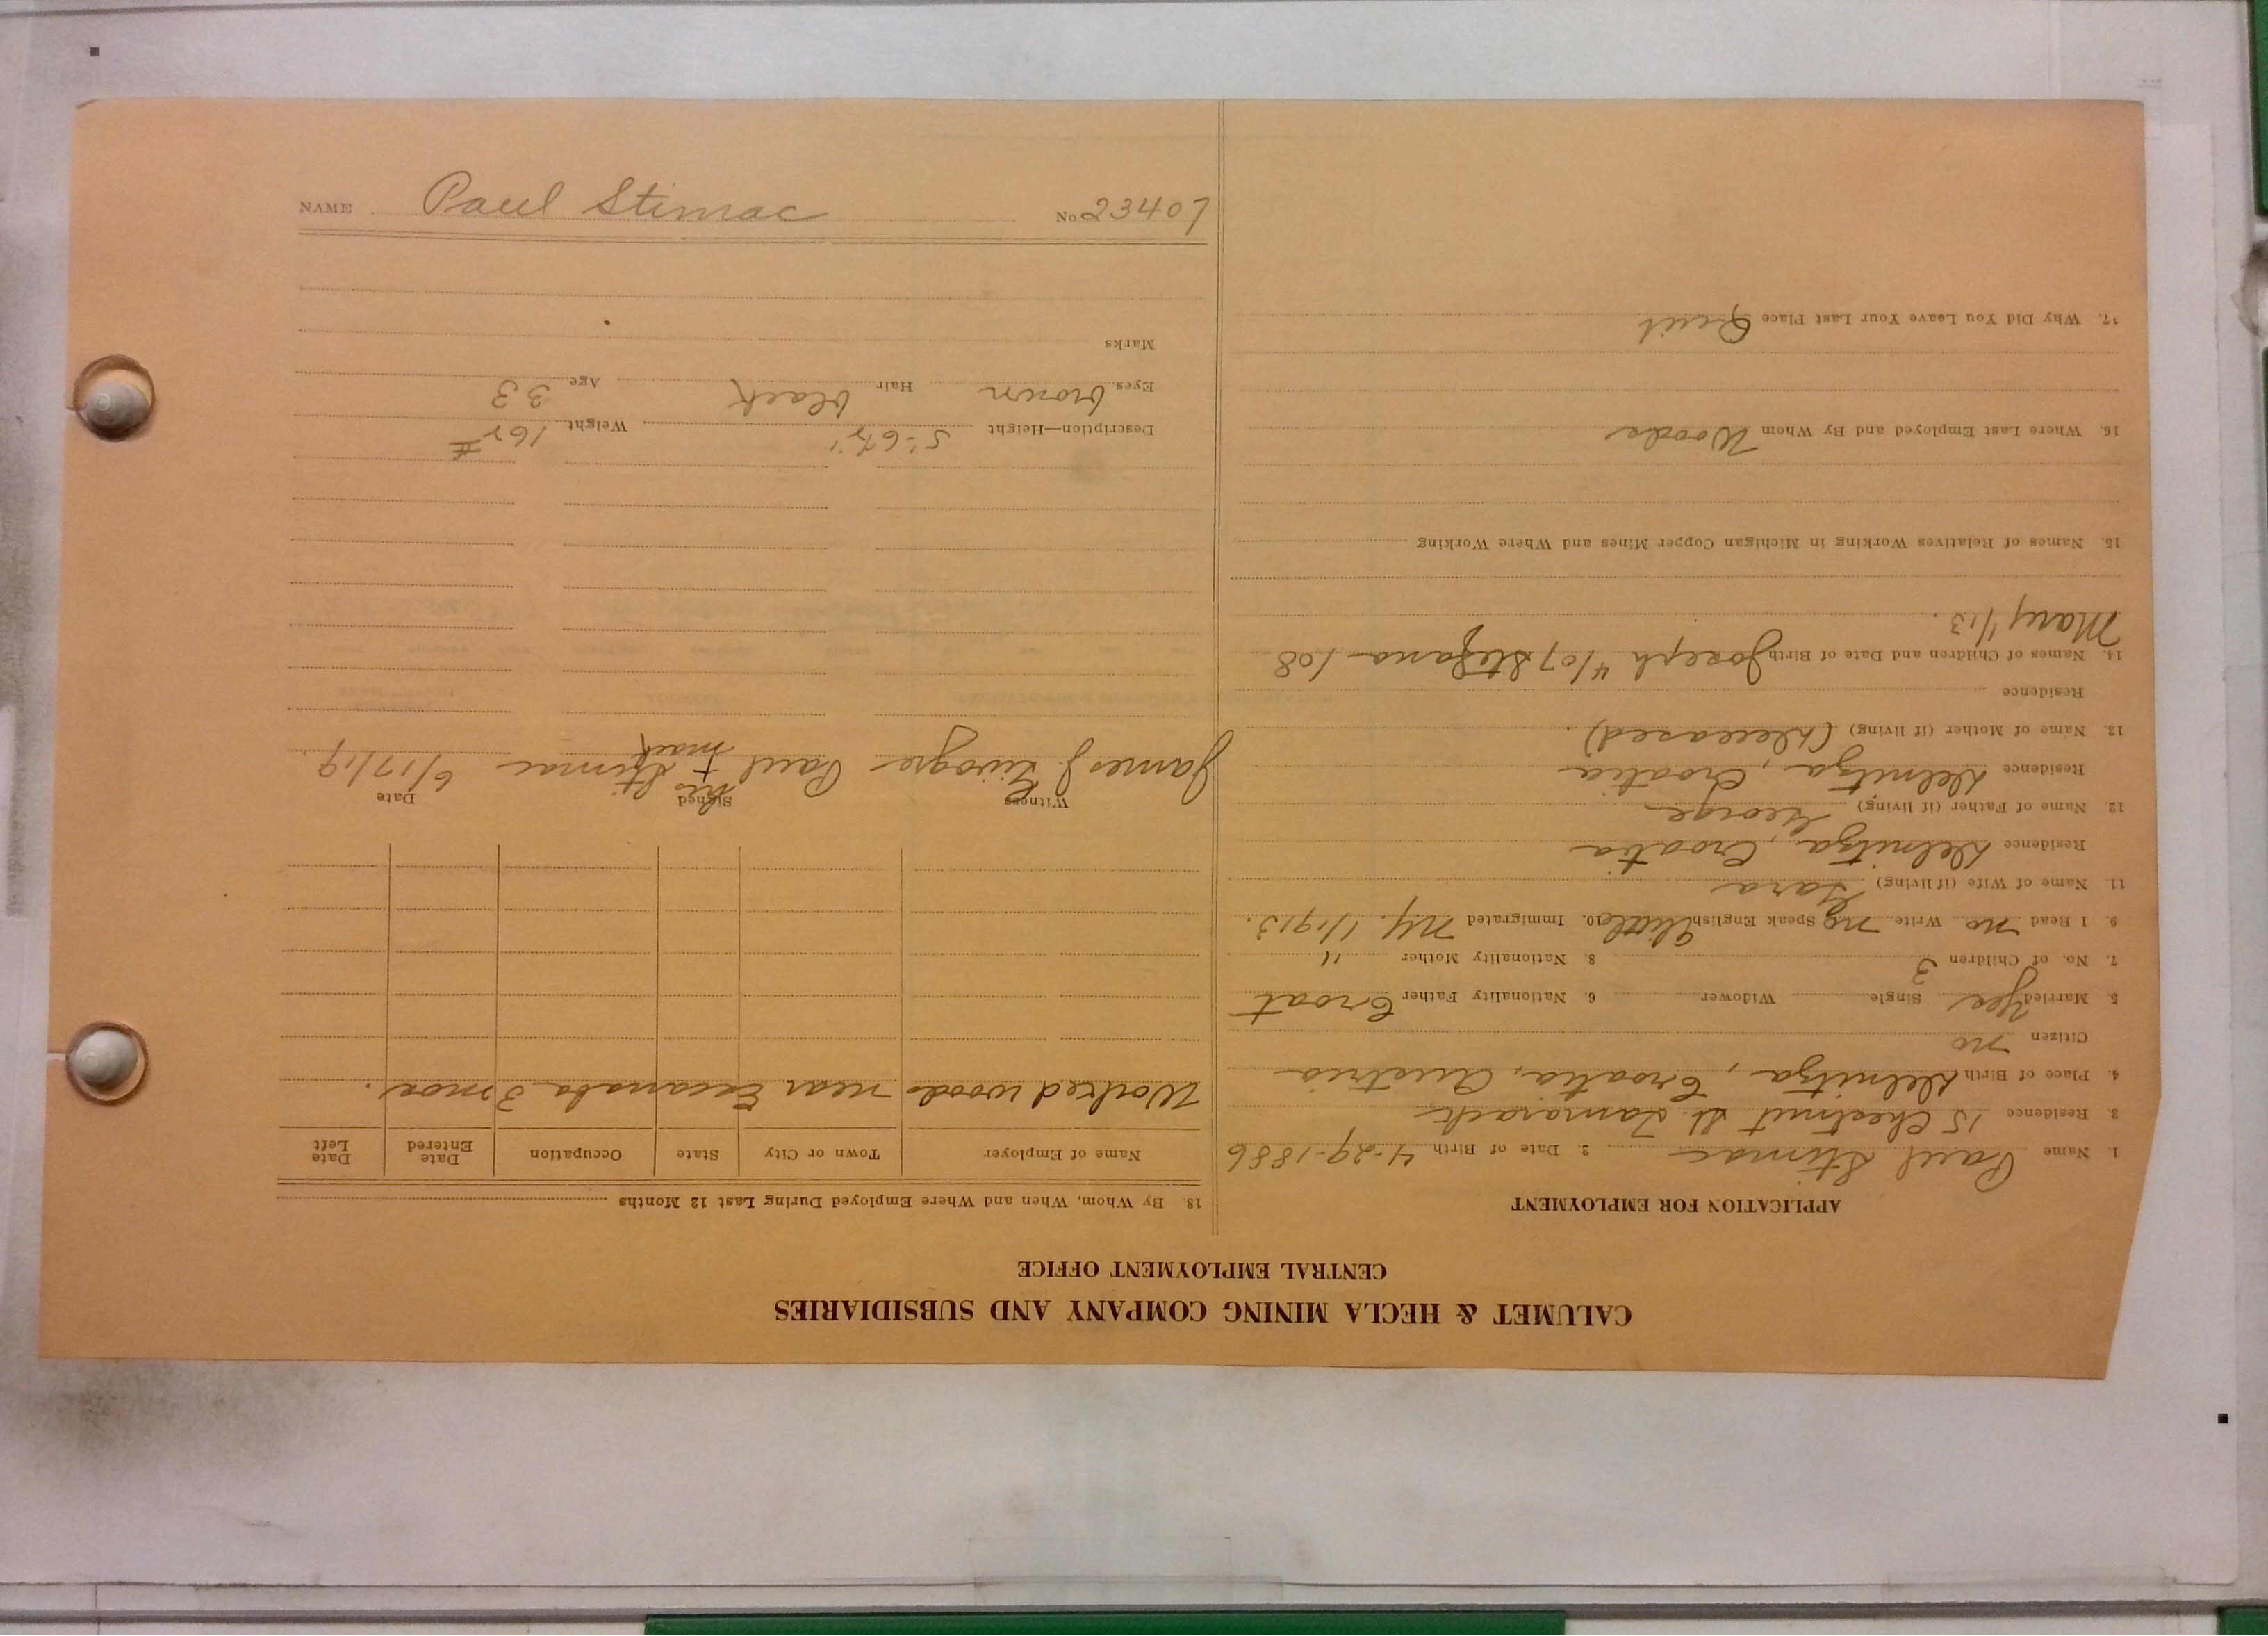 NAME Paul Stimac No. 23407
CALUMET & HECLA MINING COMPANY AND SUBSIDIARIES
CENTRAL EMPLOYMENT OFFICE
APPLICATION FOR EMPLOYMENT
1. Name Paul Stimac 2. Date of Birth 4-29-1886
3. Residence 15 Chestnut St. Tamarack
4. Place of Birth Delnitza, Croatia, Austria
Citizen no
5. Married Yes Single Widower 6. Nationality Father Croat
7. No. of Children 3 8. Nationality Mother "
9. I Read no Write no Speak English little 10. Immigrated N.Y. 1/1913.
11. Name of Wife (if living) Sara
Residence Delnitza, Croatia
12 Name of Father (if living) George
Residence Delnitza, Croatia
13. Name of Mother (if living) (Deceased).
Residence
14. Names of Children and Date of Birth Joseph 4/07 Stefano - /08
Mary 1/13.
15. Names of Relatives Working in Michigan Copper Mines and Where Working
16. Where Last Employed and By Whom Woods
17. Why Did You Leave Your Last Place Quit
18. By Whom, When and Where Employed During Last 12 Months
Name of Employer Town or City State Occupation Date Entered Date Left
Worked woods near Escanaba 3 mos.
Witness Signed Date
James J. his Paul + Stimac 6/17/19.
mark
Description—Height 5'-6½" Weight 162#
Eyes brown Hair black Age 33
Marks